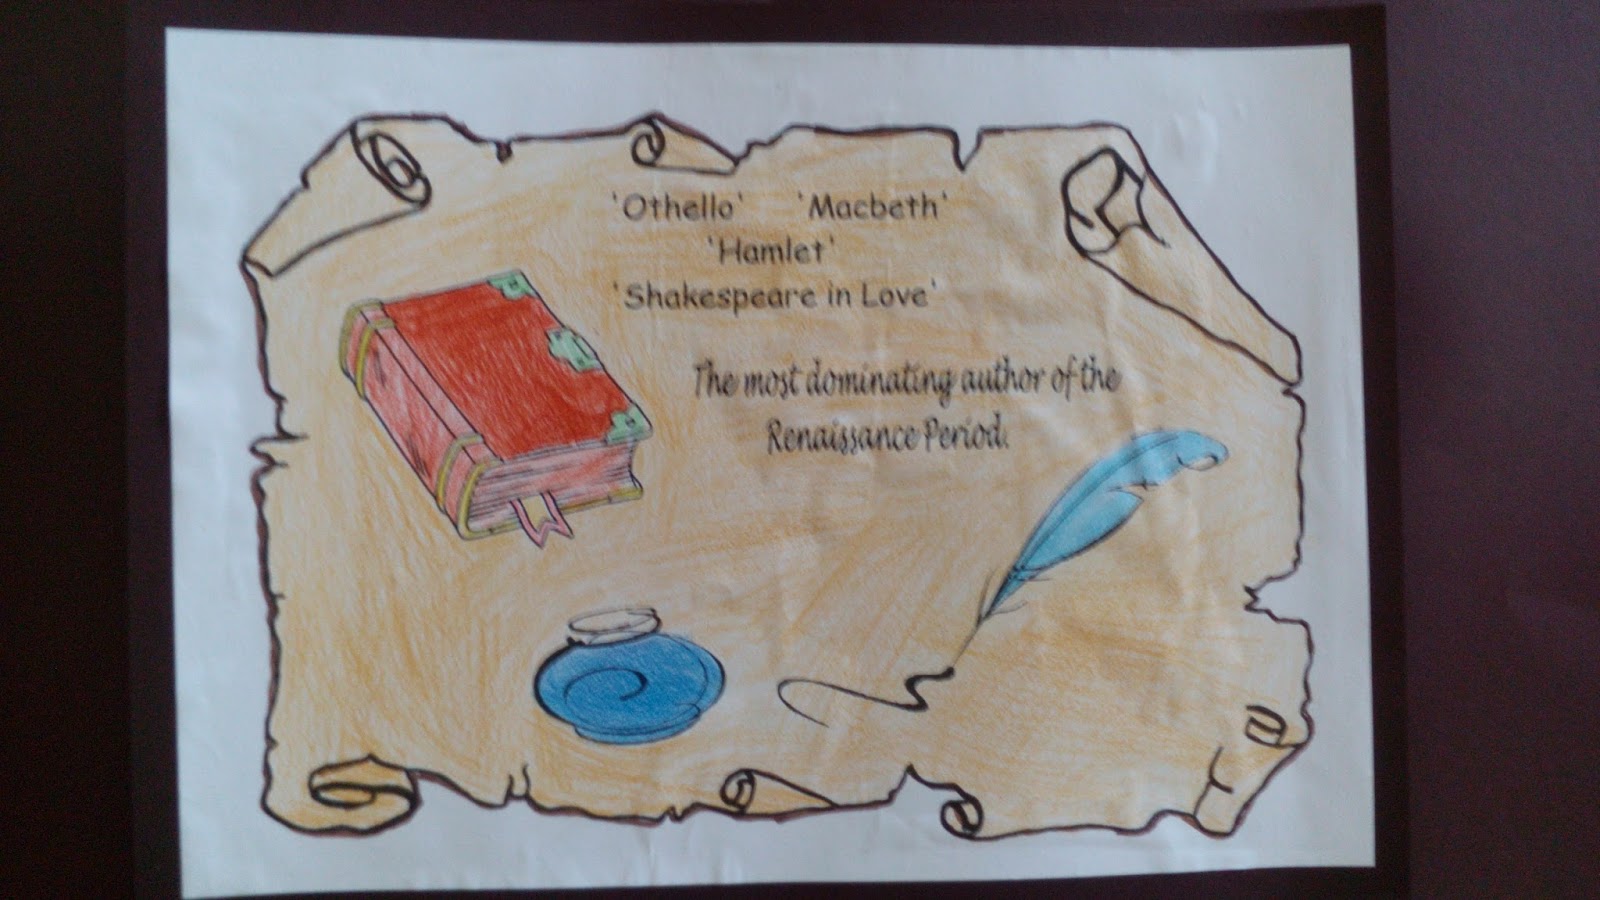 'Othello' 'Macbeth'
'Hamlet'
'Shakespeare in Love'
The most dominating author of the
Renaissance Period.